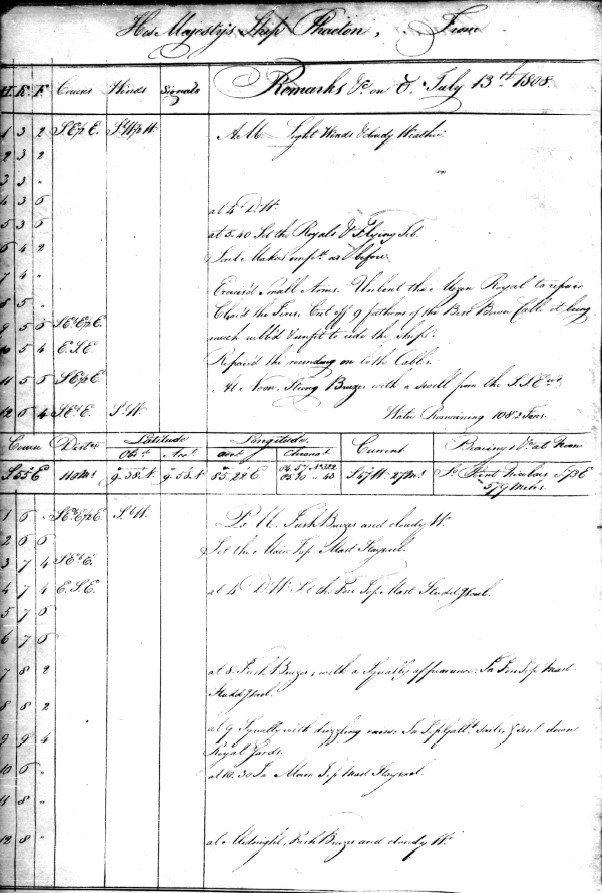 His Majesty's Ship Phaeton, From
H. K. F. Courses Winds Signals Remarks &c. on July 13th 1808.
1 3 2 S.EbE. SWbW A.M. Light Winds & cloudy Weather
2 3 2
3 3 "
4 3 6 at 4 Do Wr
5 3 6 at 5.40 Set the Royals & Flying Jib.
6 4 2 as before.
7 4 " Exercised Small Arms. Unbent the Mizen Royal to repair
8 5 " Clear'd the Tiers. Cut off 9 fathoms of the Best Bower Cable it being
9 5 5 much rubb'd & unfit to ride the ship.
10 5 4 E.S.E. Repair'd the rounding on both Cables.
11 5 6 SEbE At Noon. Strong Breezes with a swell from the S.S.E
12 6 4 Water Remaining 108 Tons.
Course Distce Latitude Longitude Current Bearings &c. at Noon
Obst Acct Acct Chronor
S 55 E 110 Ms 9.38 N 9.53 N 85.22 E S 57 W 27 Ms
579 Miles
1 6 " P.M. Fresh Breezes and cloudy Wr
2 6 6 Set the Main Top Mast Staysail.
3 7 4
4 7 4 E.S.E. at 4 Do Wr Set the Fore Top Mast Studdg Sail.
5 7 6
6 7 6
7 8 2 at 8 Fresh Breezes, with a Squally appearance. In Fore Top Mast
Studdg Sail.
8 8 2
9 9 4 at 9 Squally with drizzling rain; In Top Gallt Sails, & sent down
Royal Yards.
10 6 " at 10.30 In Main Top Mast Staysail.
11 8 "
12 8 " at Midnight, Fresh Breezes and cloudy Wr